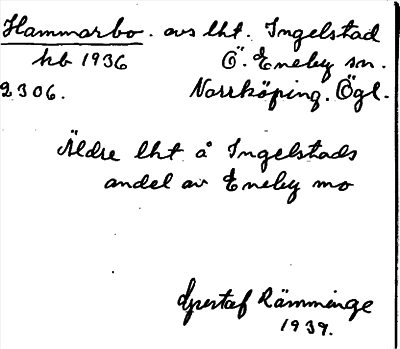 Hammarbo. avs lht. Ingelstad
hb 1936 Ö. Eneby sn.
2306. Norrköping. Ögl.
Äldre lht å Ingelstads
andel av Eneby mo
Gustaf Rämminge
1939.